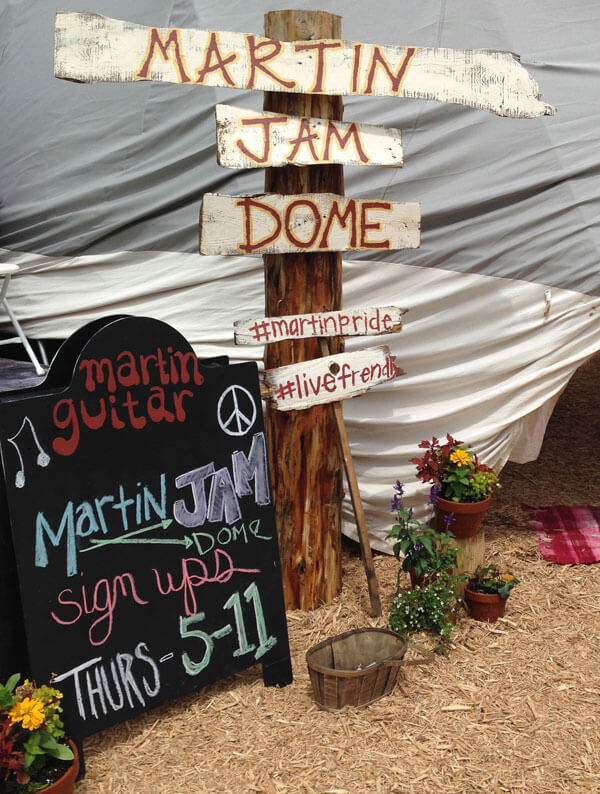 MARTIN
JAM
DOME
#martinpride
#livefrendly
martin
guitar
MartiN JAM
DOME
sign ups
THURS - 5-11